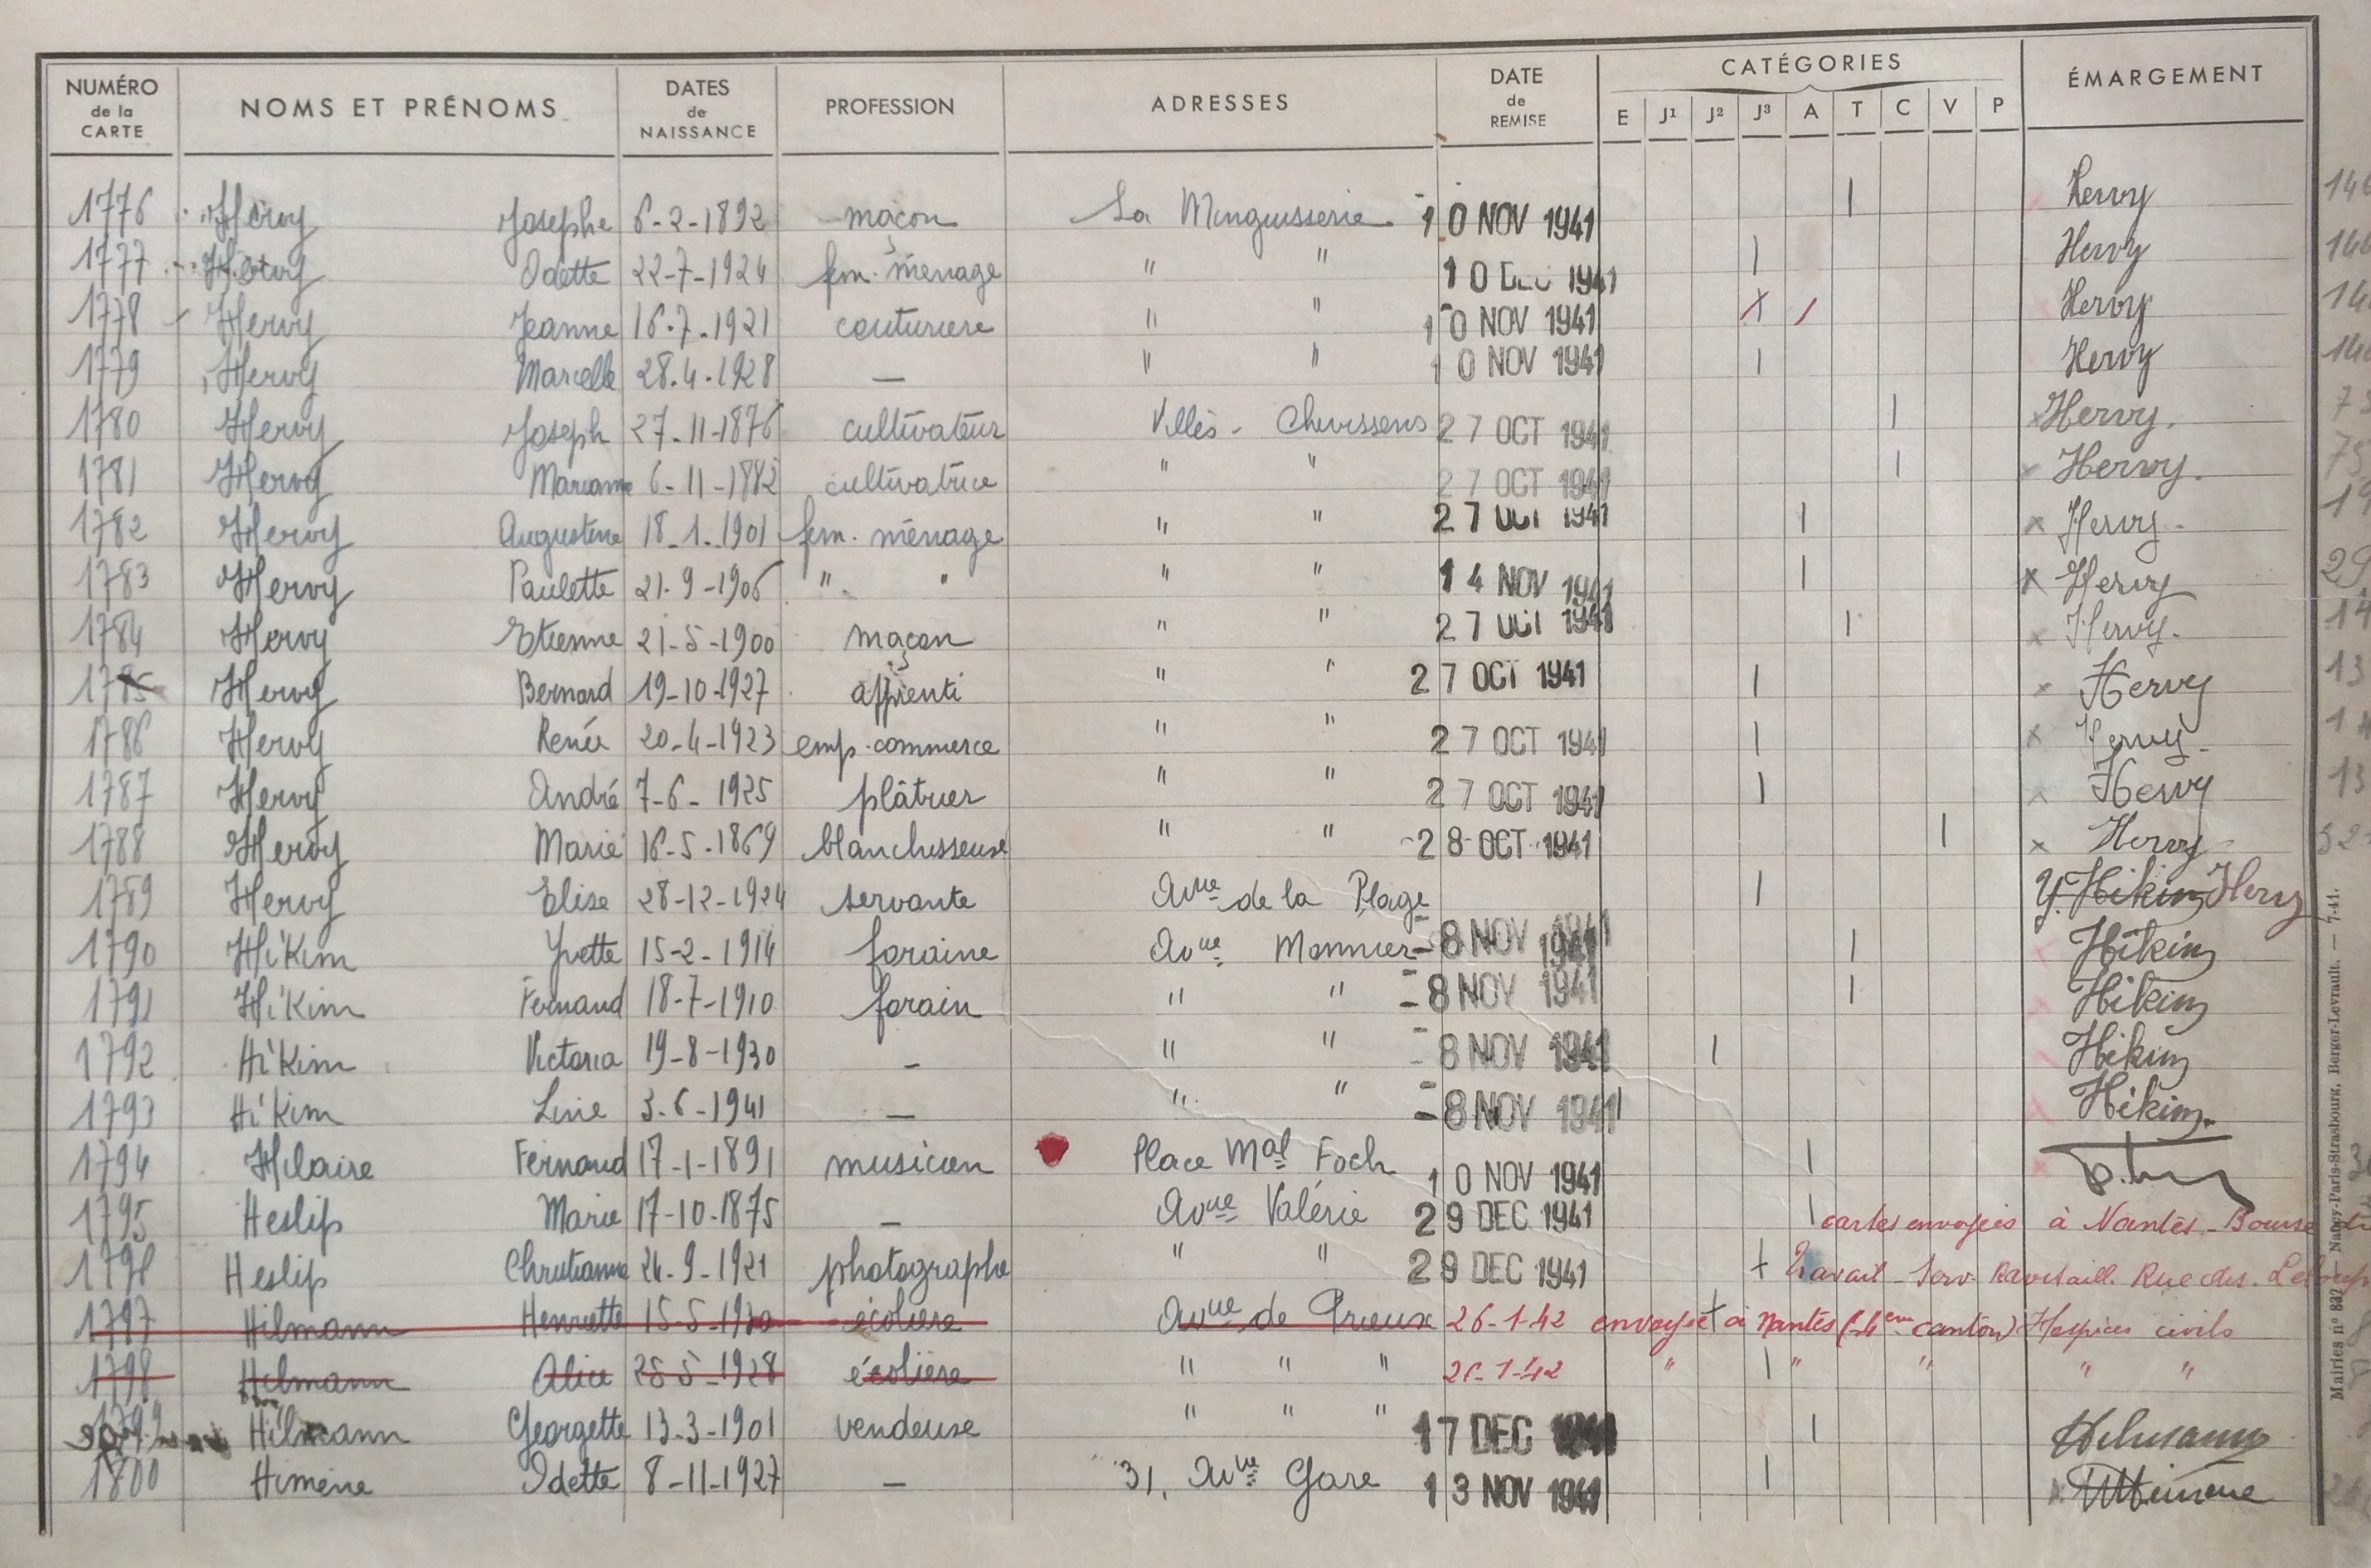 NUMÉRO de la CARTE NOMS ET PRÉNOMS DATES de NAISSANCE PROFESSION ADRESSES DATE de REMISE CATÉGORIES ÉMARGEMENT
E J1 J2 J3 A T C V P
1776 Hervy Josephe 6-2-1892 maçon La Minguisserie 10 NOV 1941 | Hervy
1777 Hervy Odette 22-7-1924 fem. ménage " " 10 DEC 1941 | Hervy
1778 Hervy Jeanne 16.7.1921 couturiere " " 10 NOV 1941 X / Hervy
1779 Hervy Marcelle 28.4.1928 — " " 10 NOV 1941 | Hervy
1780 Hervy Joseph 27-11-1876 cultivateur Villès - Chevissens 27 OCT 1941 | Hervy.
1781 Hervy Marianne 6-11-1882 cultivatrice " " 27 OCT 1941 | Hervy.
1782 Hervy Augustine 18-1-1901 fem. ménage " " 27 OCT 1941 | x Hervy.
1783 Hervy Paulette 21-9-1906 " " " " 14 NOV 1941 | x Hervy
1784 Hervy Etienne 21-5-1900 maçon " " 27 OCT 1941 | x Hervy.
1785 Hervy Bernard 19-10-1927 apprenti " " 27 OCT 1941 | x Hervy
1786 Hervy Renée 20-4-1923 emp. commerce " " 27 OCT 1941 | x Hervy.
1787 Hervy André 7-6-1925 plâtrier " " 27 OCT 1941 | x Hervy
1788 Hervy Marie 16-5-1869 blanchisseuse " " -28 OCT 1941 | x Hervy
1789 Hervy Elise 28-12-1924 servante Avue de la Plage | Y. Hikim Hervy
1790 Hi'Kim Yvette 15-2-1914 foraine Avue Monnier -8 NOV 1941 | Hikim
1791 Hi'Kim Fernand 18-7-1910 forain " " -8 NOV 1941 | Hikim
1792 Hi'Kim Victoria 19-8-1930 — " " -8 NOV 1941 | Hikim
1793 Hi'Kim Line 3-6-1941 — " " -8 NOV 1941 Hikim.
1794 Hilaire Fernand 17-1-1891 musicien Place Mal Foch 10 NOV 1941 |
1795 Heslip Marie 17-10-1875 — Avue Valérie 29 DEC 1941 | cartes envoyées à Nantes - Bourse du
1796 Heslip Christianne 24-9-1921 photographe " " 29 DEC 1941 Travail - Serv. Ravitaill. Rue
1797 Hilmann Henriette 15-5-1930 écolière Avue de Prieux 26-1-42 envoyée à Nantes (4eme canton) Hospices civils
1798 Hilmann Alice 25-5-1928 écolière " " " 26-1-42 " | " " " "
1799 Hilmann Georgette 13-3-1901 vendeuse " " " 17 DEC 1941 | Hilmann
1800 Himène Odette 8-11-1927 — 31, Avue Gare 13 NOV 1941 | Himène
Mairies n° 832 — Nancy-Paris-Strasbourg, Berger-Levrault. — 7-41.